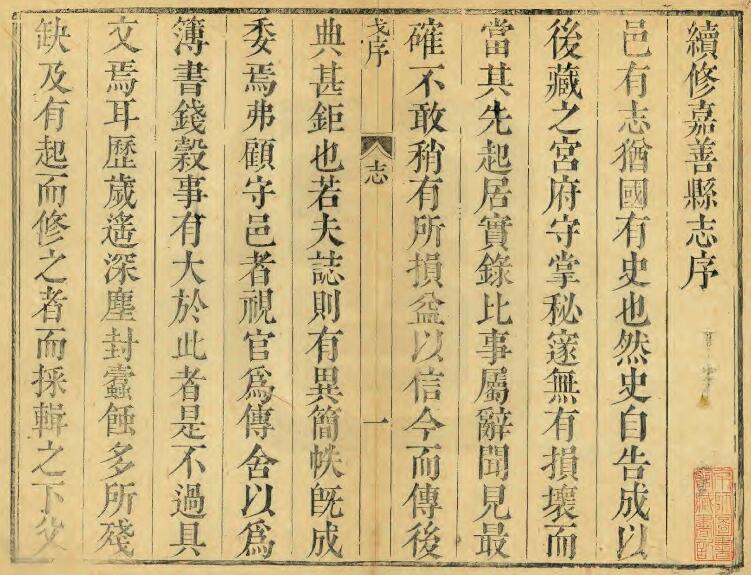 續修嘉善縣志序
邑有志猶國有史也然史自告成以
後藏之宮府守掌秘邃無有損壞而
當其先起居實錄比事屬辭聞見最
確不敢稍有所損益以信今而傳後
戈序
志
一
典甚鉅也若夫誌則有異簡帙旣成
委焉弗顧守邑者視官爲傳舍以爲
簿書錢穀事有大於此者是不過具
文焉耳歷歲遙深塵封蠹蝕多所殘
缺及有起而修之者而採輯之下父